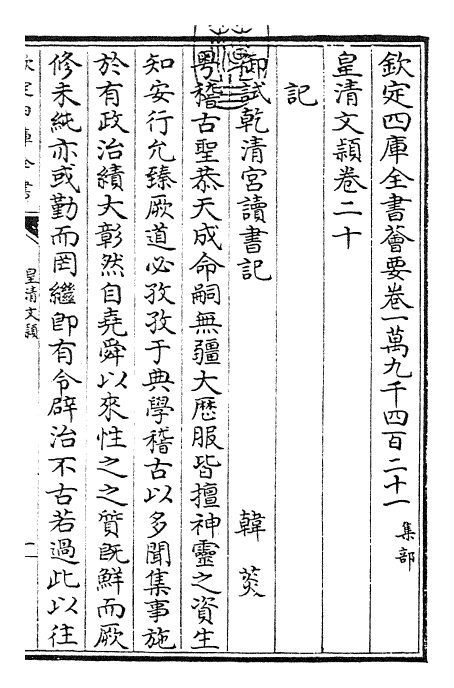 欽定四庫全書薈要卷一萬九千四百二十一 集部
皇清文穎卷二十
記
御試乾清宮讀書記 韓菼
粵稽古聖恭天成命嗣無疆大歷服皆擅神靈之資生
知安行允臻厥道必孜孜于典學稽古以多聞集事施
於有政治績大彰然自堯舜以來性之之質既鮮而厥
修未純亦或勤而罔繼即有令辟治不古若過此以往
欽定四庫全書
皇清文穎
一